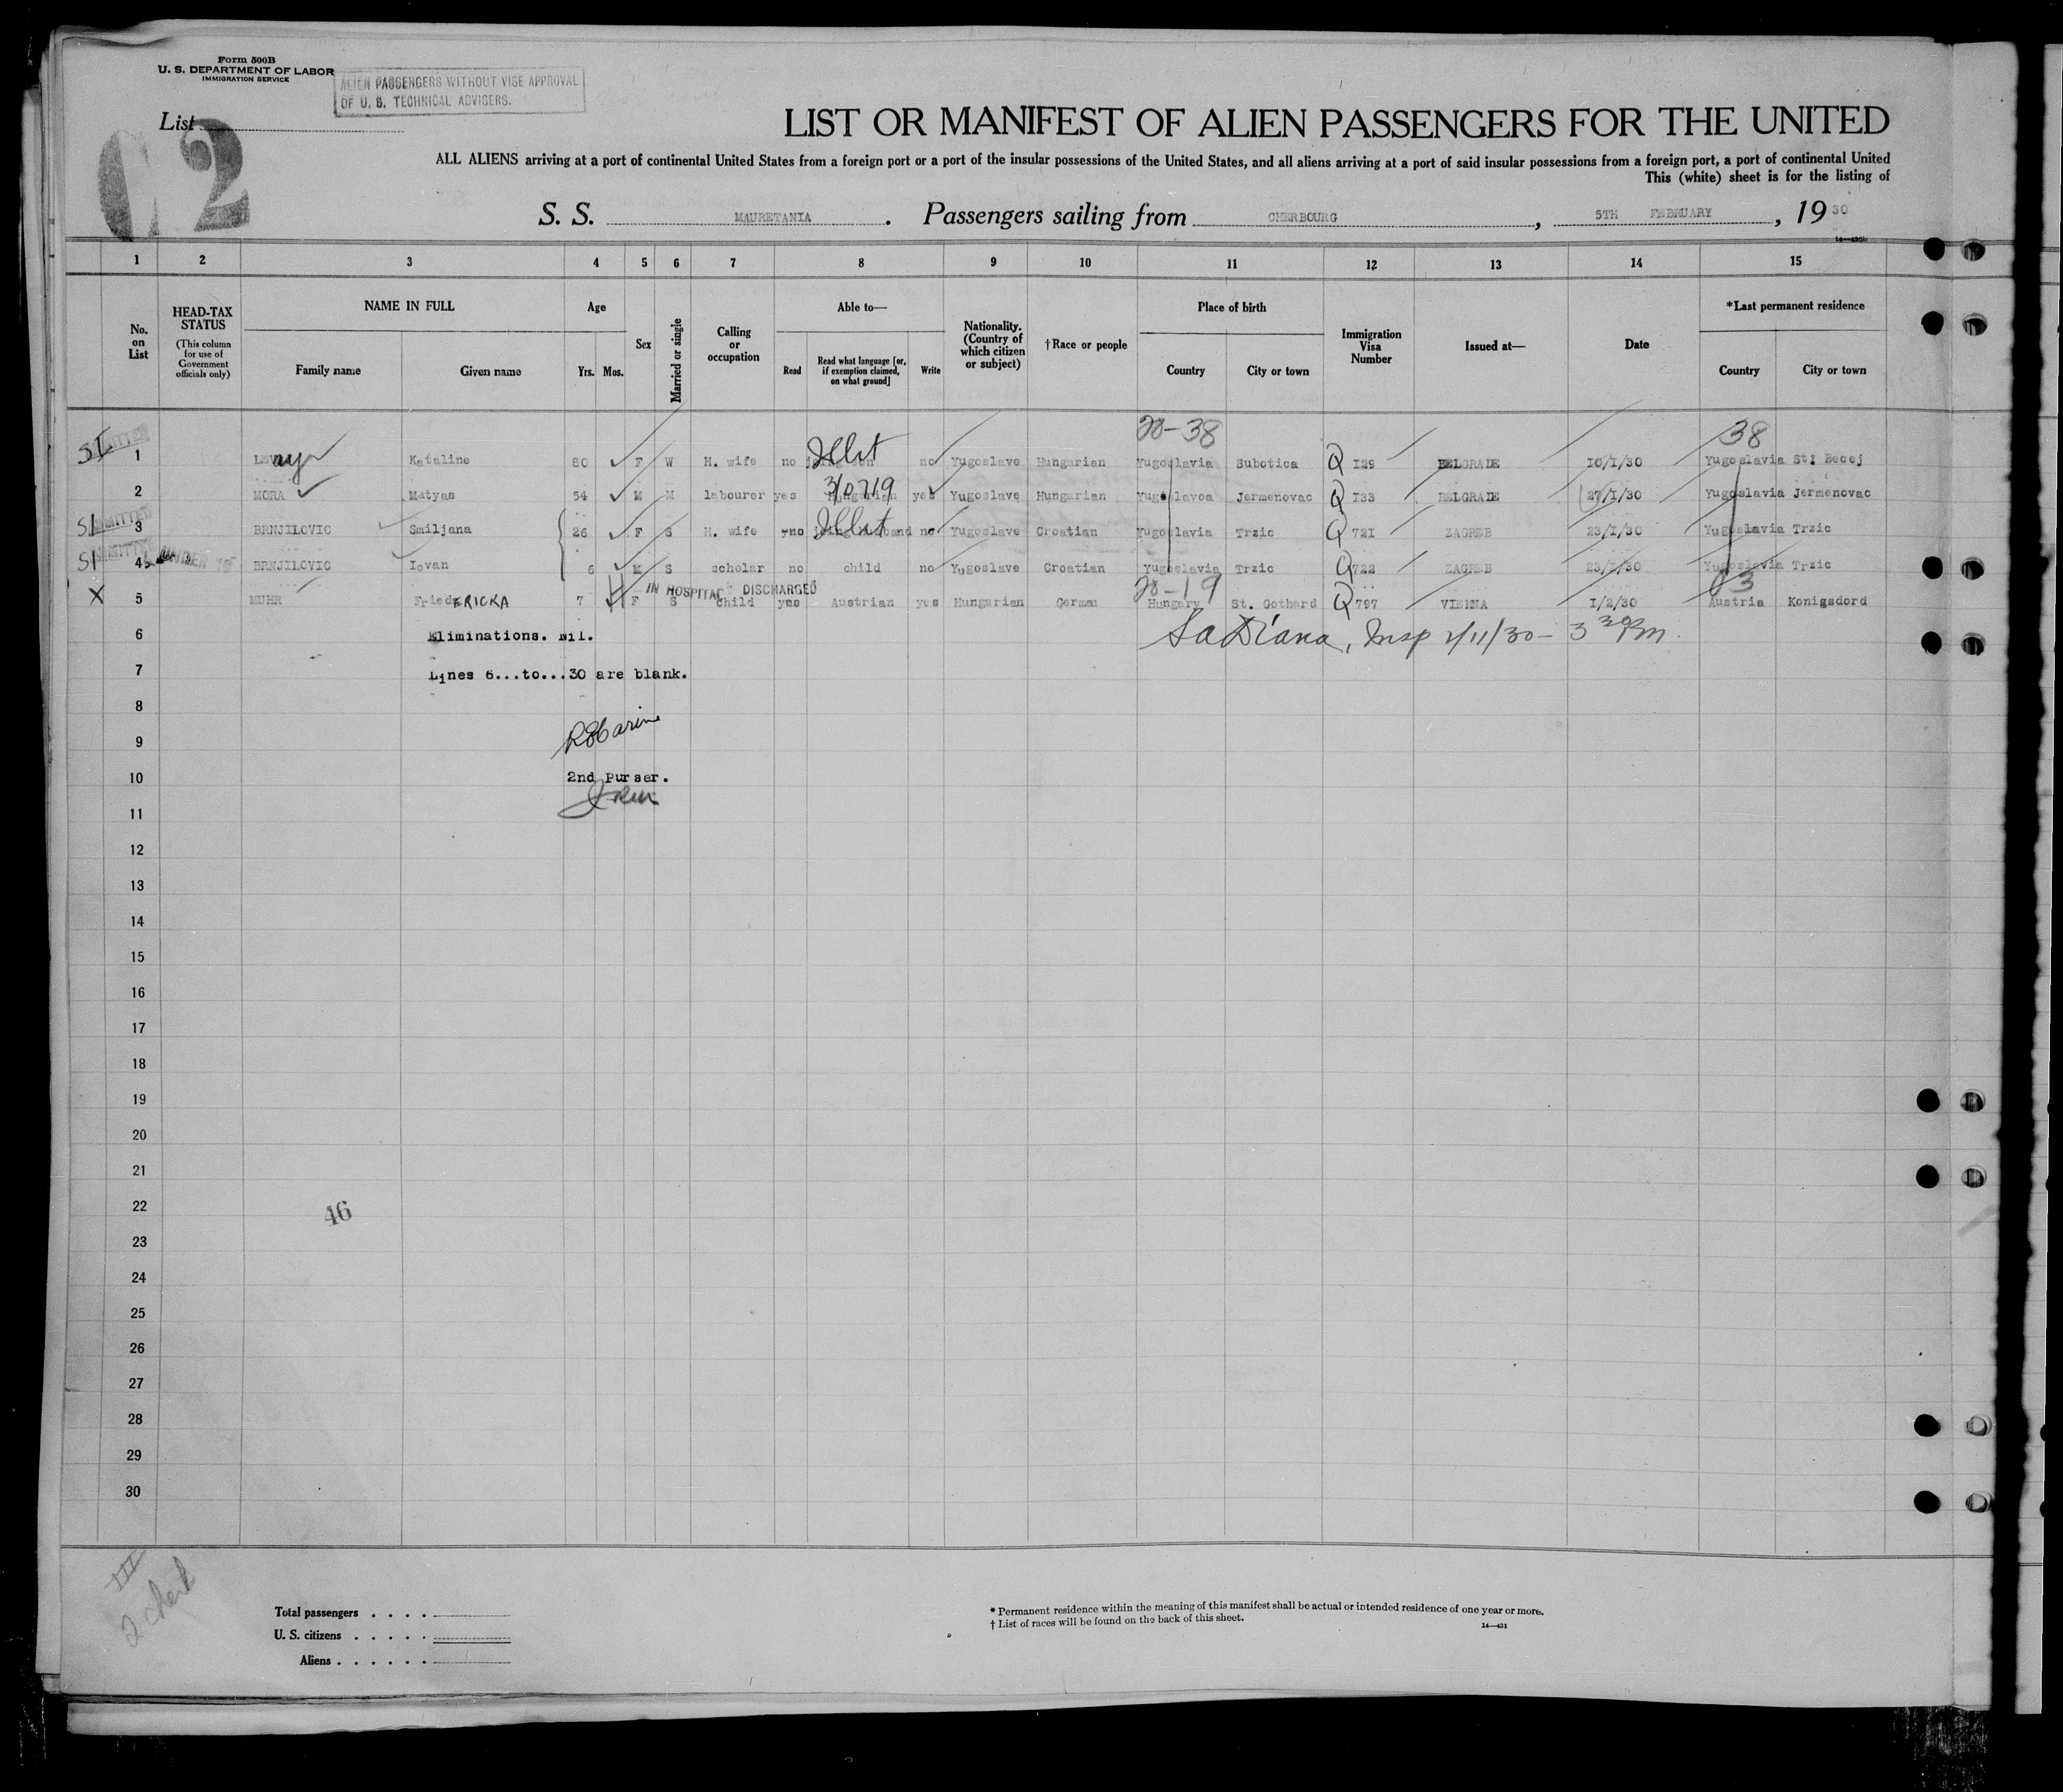 Form 500B
U. S. DEPARTMENT OF LABOR
IMMIGRATION SERVICE
ALIEN PASSENGERS WITHOUT VISE APPROVAL
OF U. S. TECHNICAL ADVISERS.
List
2
LIST OR MANIFEST OF ALIEN PASSENGERS FOR THE UNITED
ALL ALIENS arriving at a port of continental United States from a foreign port or a port of the insular possessions of the United States, and all aliens arriving at a port of said insular possessions from a foreign port, a port of continental United
This (white) sheet is for the listing of
S. S. MAURETANIA. Passengers sailing from CHERBOURG, 5TH FEBRUARY, 1930
1 2 3 4 5 6 7 8 9 10 11 12 13 14 15
No. on List
HEAD-TAX STATUS
(This column for use of Government officials only)
NAME IN FULL
Family name
Given name
Age
Yrs. Mos.
Sex
Married or single
Calling or occupation
Able to—
Read
Read what language [or, if exemption claimed, on what ground]
Write
Nationality. (Country of which citizen or subject)
†Race or people
Place of birth
Country
City or town
Immigration Visa Number
Issued at—
Date
*Last permanent residence
Country
City or town
38
SI 1 Kataline 80 F W H. wife no no Yugoslave Hungarian Yugoslavia Subotica Q I29 BELGRADE I0/I/30 Yugoslavia St: Becej
2 MORA Matyas 54 M M labourer yes Hungarian yes Yugoslave Hungarian Yugoslavoa Jermenovac Q I33 BELGRADE 27/I/30 Yugoslavia Jermenovac
SI 3 BRNJILOVIC Smiljana 26 F S H. wife no husband no Yugoslave Croatian Yugoslavia Trzic Q 72I ZAGREB 23/I/30 Yugoslavia Trzic
SI 4 BRNJILOVIC Iovan 6 M S scholar no child no Yugoslave Croatian Yugoslavia Trzic Q 722 ZAGREB 23/I/30 Yugoslavia Trzic
IN HOSPITAL DISCHARGED
03
X 5 MUHR FriedERICKA 7 F S child yes Austrian yes Hungarian German Hungary St. Gothard Q 797 VIENNA I/2/30 Austria Konigsdord
6 Eliminations. Nil. Insp 2/11/30 - 3 30 PM
7 Lines 6...to...30 are blank.
8
9
10 2nd Purser.
11
12
13
14
15
16
17
18
19
20
21
22 46
23
24
25
26
27
28
29
30
III
Total passengers . . . .
U. S. citizens . . . . .
Aliens . . . . . .
* Permanent residence within the meaning of this manifest shall be actual or intended residence of one year or more.
† List of races will be found on the back of this sheet.
14—431